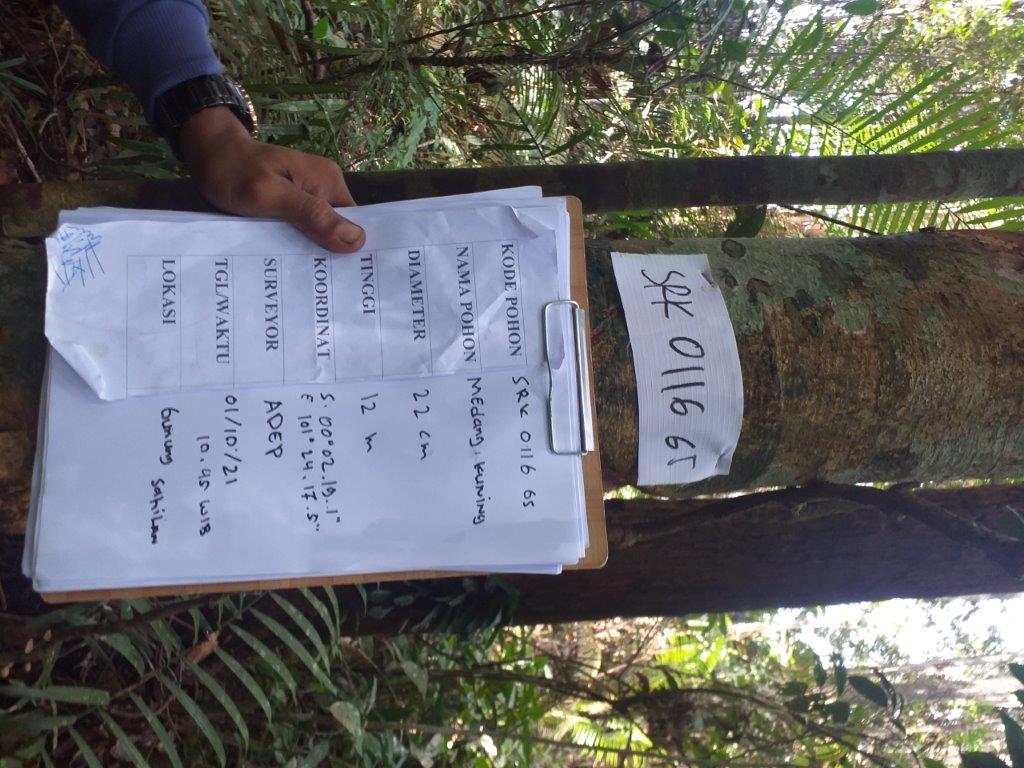 KODE POHON SRK 0116 GS
NAMA POHON Medang, kuning
DIAMETER 22 cm
TINGGI 12 m
KOORDINAT S. 00°02.19.1"
E 101° 24.17.5"
SURVEYOR ADEP
TGL/WAKTU 01/10/21
10.45 WIB
LOKASI Gunung Sahilan
SRK 0116 GS